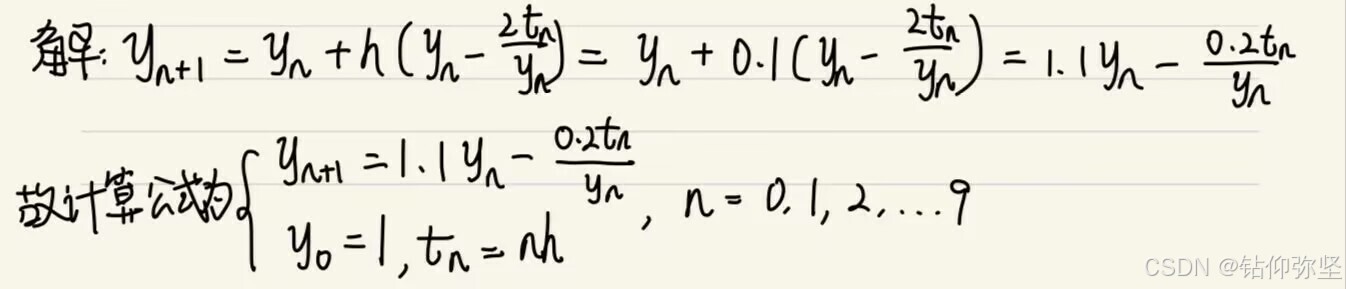 解: y_{n+1} = y_n + h(y_n - \frac{2t_n}{y_n}) = y_n + 0.1(y_n - \frac{2t_n}{y_n}) = 1.1y_n - \frac{0.2t_n}{y_n}
故计算公式为{ y_{n+1} = 1.1y_n - \frac{0.2t_n}{y_n}
y_0 = 1, t_n = nh , n = 0, 1, 2, ... 9
CSDN @钻仰弥坚